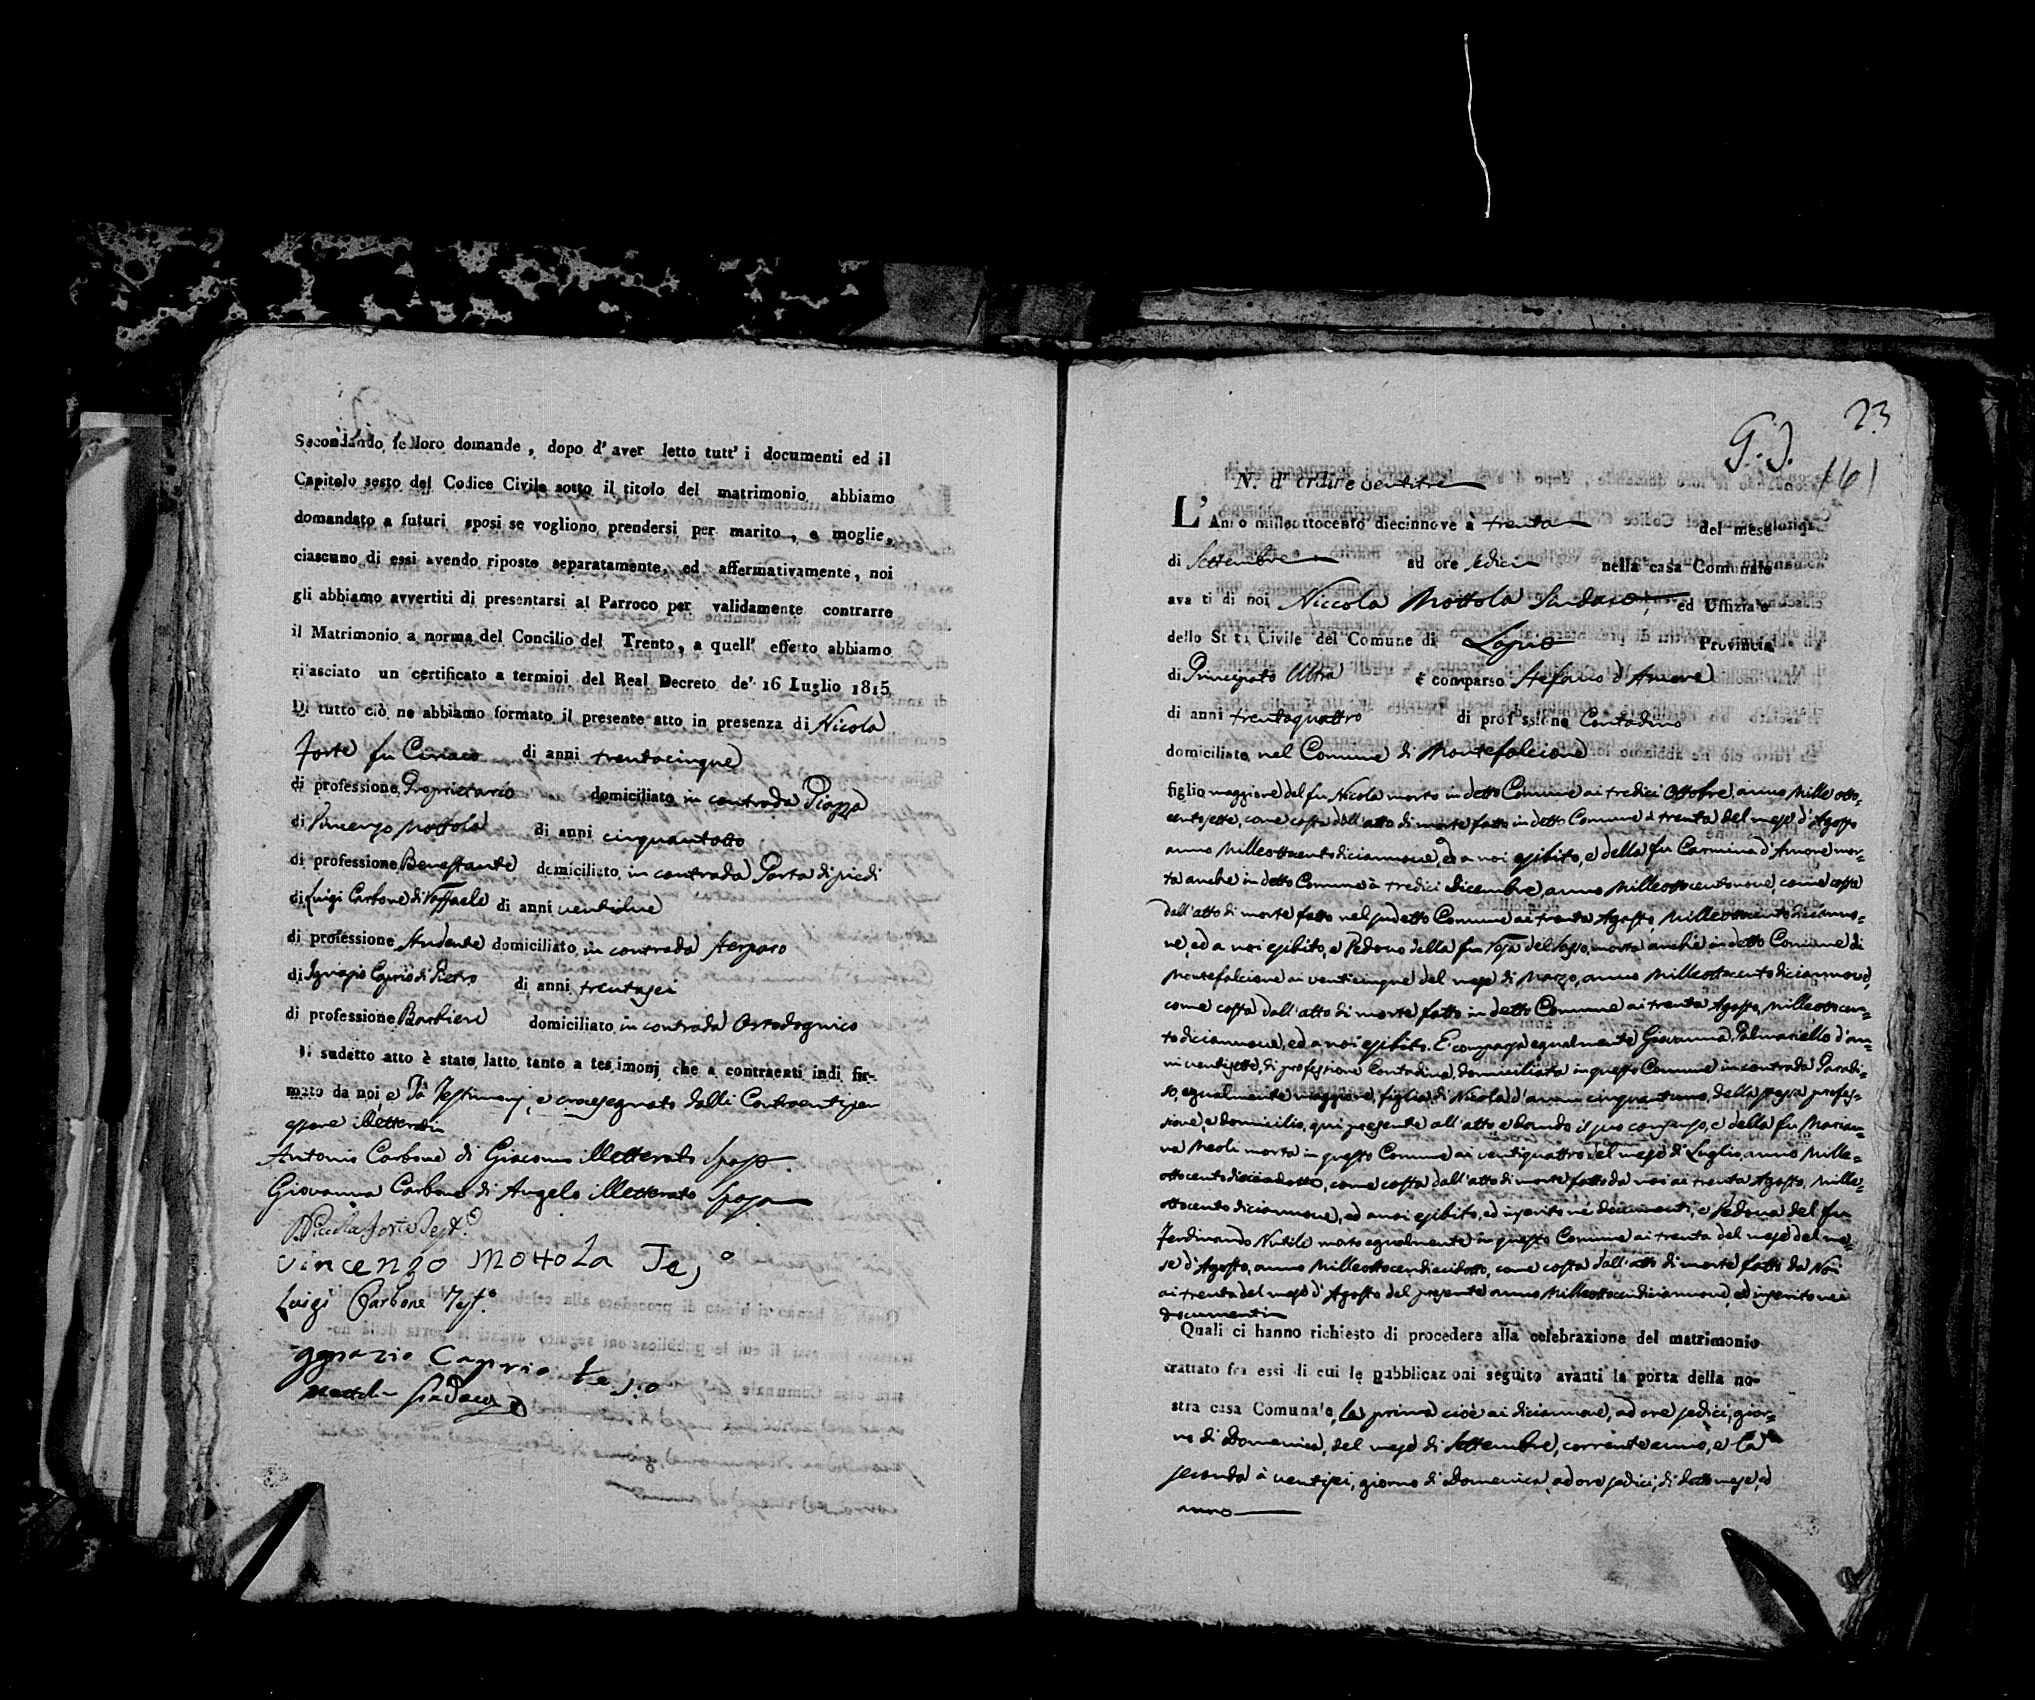 Secondando le loro domande, dopo d'aver letto tutt'i documenti ed il
Capitolo sesto del Codice Civile sotto il titolo del matrimonio abbiamo
domandato a futuri sposi se vogliono prendersi per marito, e moglie,
ciascuno di essi avendo riposto separatamente, ed affermativamente, noi
gli abbiamo avvertiti di presentarsi al Parroco per validamente contrarre
il Matrimonio a norma del Concilio del Trento, a quell' effetto abbiamo
rilasciato un certificato a termini del Real Decreto de' 16 Luglio 1815
Di tutto ciò ne abbiamo formato il presente atto in presenza di Nicola
Forte fu Ciriaco di anni trentacinque
di professione Proprietario domiciliato in contrada Piazza
di Vincenzo Mottola di anni cinquantotto
di professione Benestante domiciliato in contrada Porta di piedi
di Luigi Carbone di Raffaele di anni ventidue
di professione Studente domiciliato in contrada
di Ignazio Caprio di Pietro di anni trentasei
di professione Barbiere domiciliato in contrada
Il sudetto atto è stato latto tanto a testimonj che a contraenti indi fir-
mato da noi, e Testimonj, e crocesegnato dalli Contraenti per
essere illetterati
Antonio Carbone di Giacomo illetterato sposo.
Giovanna Carbone di Angelo illetterato sposa
Niccola Forte Test.o
vincenzo Mottola Tes.o
Luigi Carbone Test.o
Ignazio Caprio Tes.o
Mottola Sindaco
23
161
N. d'ordine ventitre
L'Anno milleottocento diecinnove à trenta del mese
di Settembre ad ore sedici nella casa Comunale
avanti di noi Niccola Mottola Sindaco, ed Uffiziale
dello Stato Civile del Comune di Lapio Provincia
di Principato Ultra è comparso Stefano d'Amore
di anni trentaquattro di professione Contadino
domiciliato nel Comune di Montefalcione
figlio maggiore del fu Nicola morto in detto Comune ai tredici Ottobre, anno Mille otto-
centosette, come costa dall'atto di morte fatto in detto Comune à trenta del mese d'Agosto
anno Milleottocentodiciannove, ed a noi esibito, e della fu Carmina d'Amore mor-
ta anche in detto Comune à tredici dicembre, anno Milleottocentonove, come costa
dall'atto di morte fatto nel sudetto Comune ai trenta Agosto, Milleottocentodicianno-
ve, ed a noi esibito, e Vedovo della fu Rosa morta anche in detto Comune di
Montefalcione ai venticinque del mese di Marzo, anno Milleottocentodiciannove,
come costa dall'atto di morte fatto in detto Comune ai trenta Agosto, Milleottocen-
todiciannove, ed a noi esibito. E comparsa egualmente Giovanna Palmariello d'an-
ni ventisette, di professione Contadina, domiciliata in questo Comune in contrada Paradi-
so, egualmente maggiore, figlia di Nicola d'anni cinquantuno, della stessa profes-
sione e domicilio, qui presente all'atto e dando il suo consenso, e della fu Marian-
na Meoli morta in questo Comune ai ventiquattro del mese di Luglio, anno Mille-
ottocentodiciadotto, come costa dall'atto di morte fatto da noi ai trenta Agosto, Mille-
ottocentodiciannove, ed a noi esibito, ed inserito né documenti, e Vedova del fu
Ferdinando Nutile morto egualmente in questo Comune ai trenta del mese del me-
se d'Agosto, anno Milleottocendieciidotto, come costa dall'atto di morte fatto da Noi
ai trenta del mese d'Agosto del presente anno Milleottocendiciannove, ed inserito nei
documenti
Quali ci hanno richiesto di procedere alla celebrazione del matrimonio
trattato fra essi di cui le pubblicazioni seguito avanti la porta della no-
stra casa Comunale, la prima cioè ai diciannove, ad ore sedici, gior-
no di Domenica, del mese di Settembre, corrente anno, e la
seconda à ventisei, giorno di Domenica, ad ore sedici, di detto mese, ed
anno